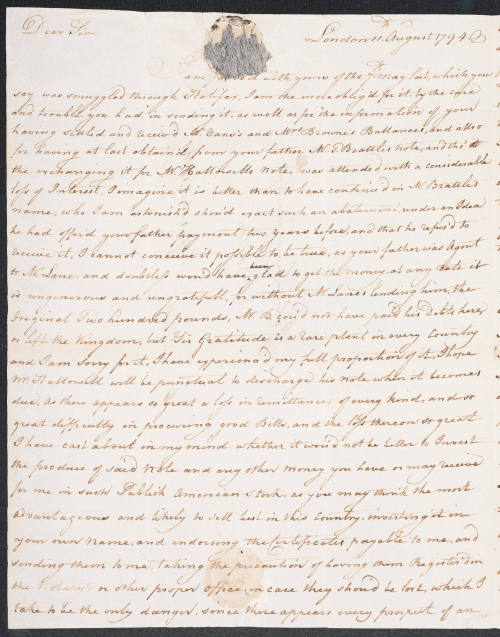 Dear Sir London 11th August 1794
am favored with yours of the 7th May last, which you
say was smuggled through Halifax, I am the more oblig'd for it, by the care
and trouble you had in sending it, as well as for the information of your
having settled and receiv'd Mr Cans's and Mrs Browne's Ballances, and also
for having at last obtain'd from your father Mr T Brattles note, and tho' th
the exchanging it for Mr Hallowells Note, was attended with a considerable
loss of Interest, I imagine it is better than to have continued in Mr Brattles
name, who I am astonish'd shou'd exact such an abatement, under an Idea
he had offer'd your father payment two Years before, and that he refus'd to
receive it, I cannot conceive it possible to be true, as your father was Agent
to Mr Lane, and doubtless would have been glad to get the money, at any rate it
is ungenerous and ungratefull, for without Mr Lane's lending him, the
Original Two hundred pounds, Mr B cou'd not have paid his Debts here,
or left the Kingdom, but Sir Gratitude is a rare plant in every Country
and I am Sorry for it, I have experienced my full proportion of it, I hope
Mr Hallowell will be punctual to discharge his note when it becomes
due. As there appears so great a loss in remittances of every kind, and so
great difficulty in procuring good Bills, and the loss thereon so great
I have cast about in my mind whether it wou'd not be better to Invest
the produce of said Note and any other Money you have or may receive
for me in such Publick American Stock, as you may think the most
advantageous and likely to sell best in this Country, investing it in
your own Name, and endorsing the Certificates payable to me, and
sending them to me, taking the precaution of having them Register'd in
the Notary's or other proper office in case they should be lost, which I
take to be the only danger, since there appears every prospect of an